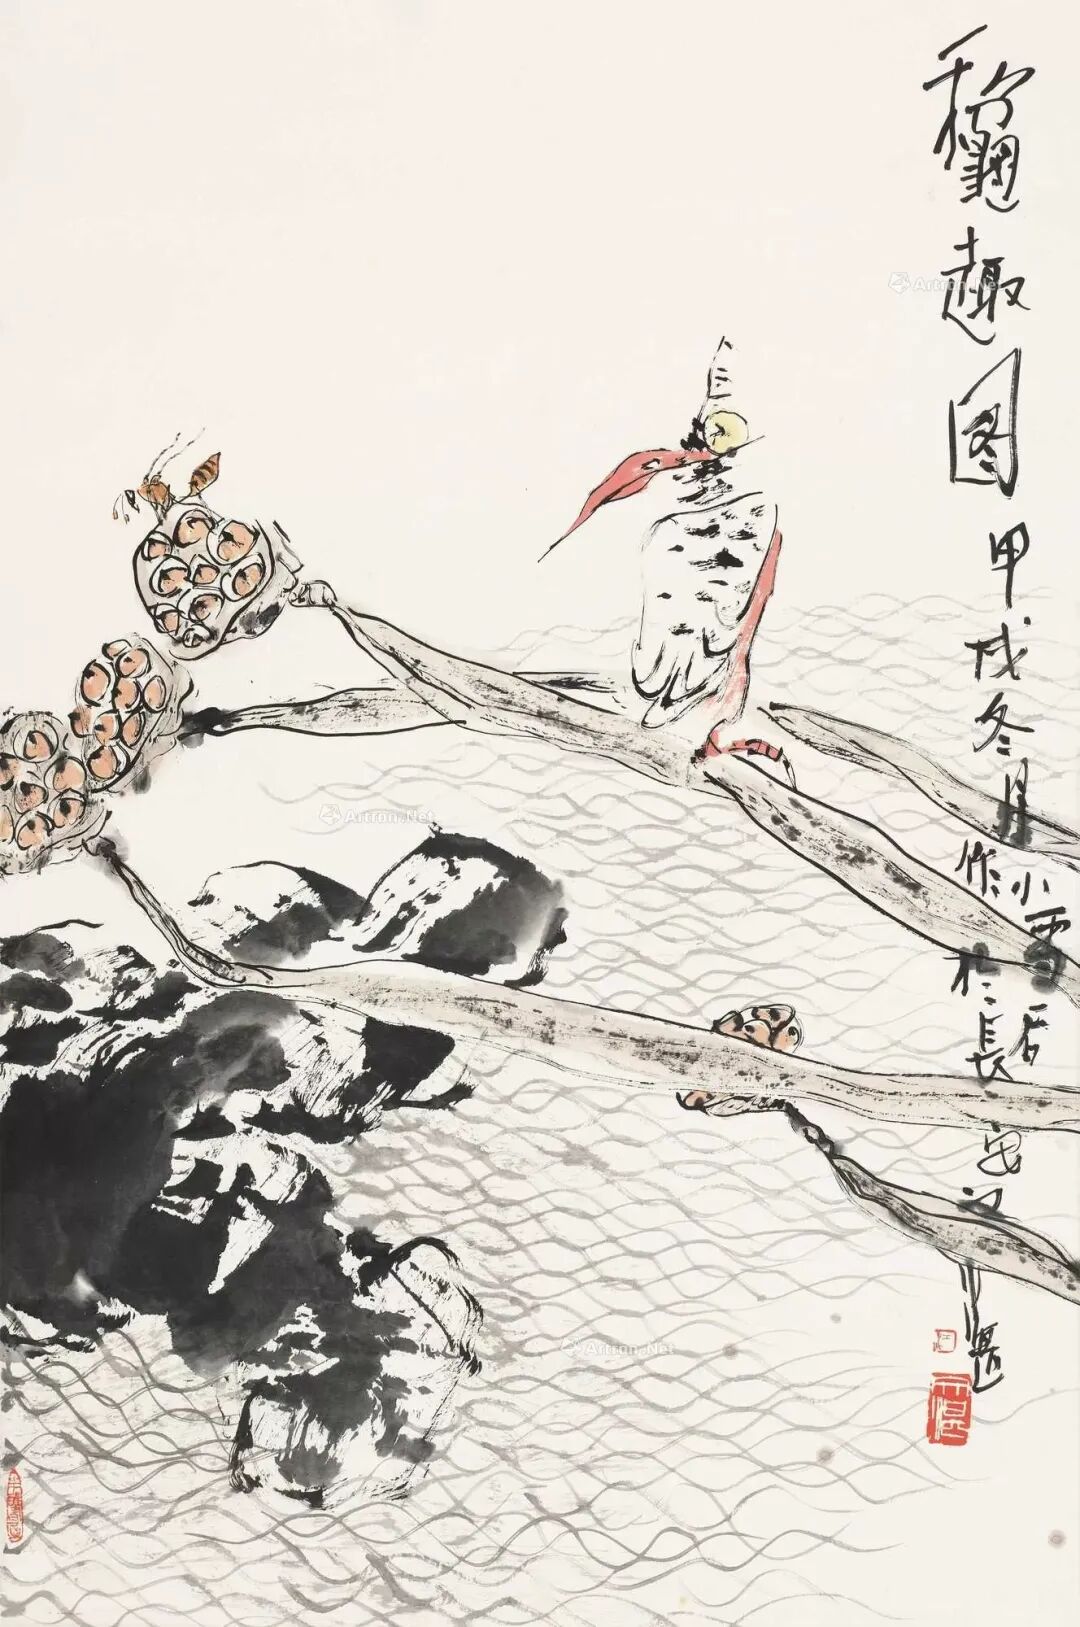 龝趣图 甲戌冬月
小雪后
作於長安江
題
Artron.Net
Artron.Net
Artron.Net